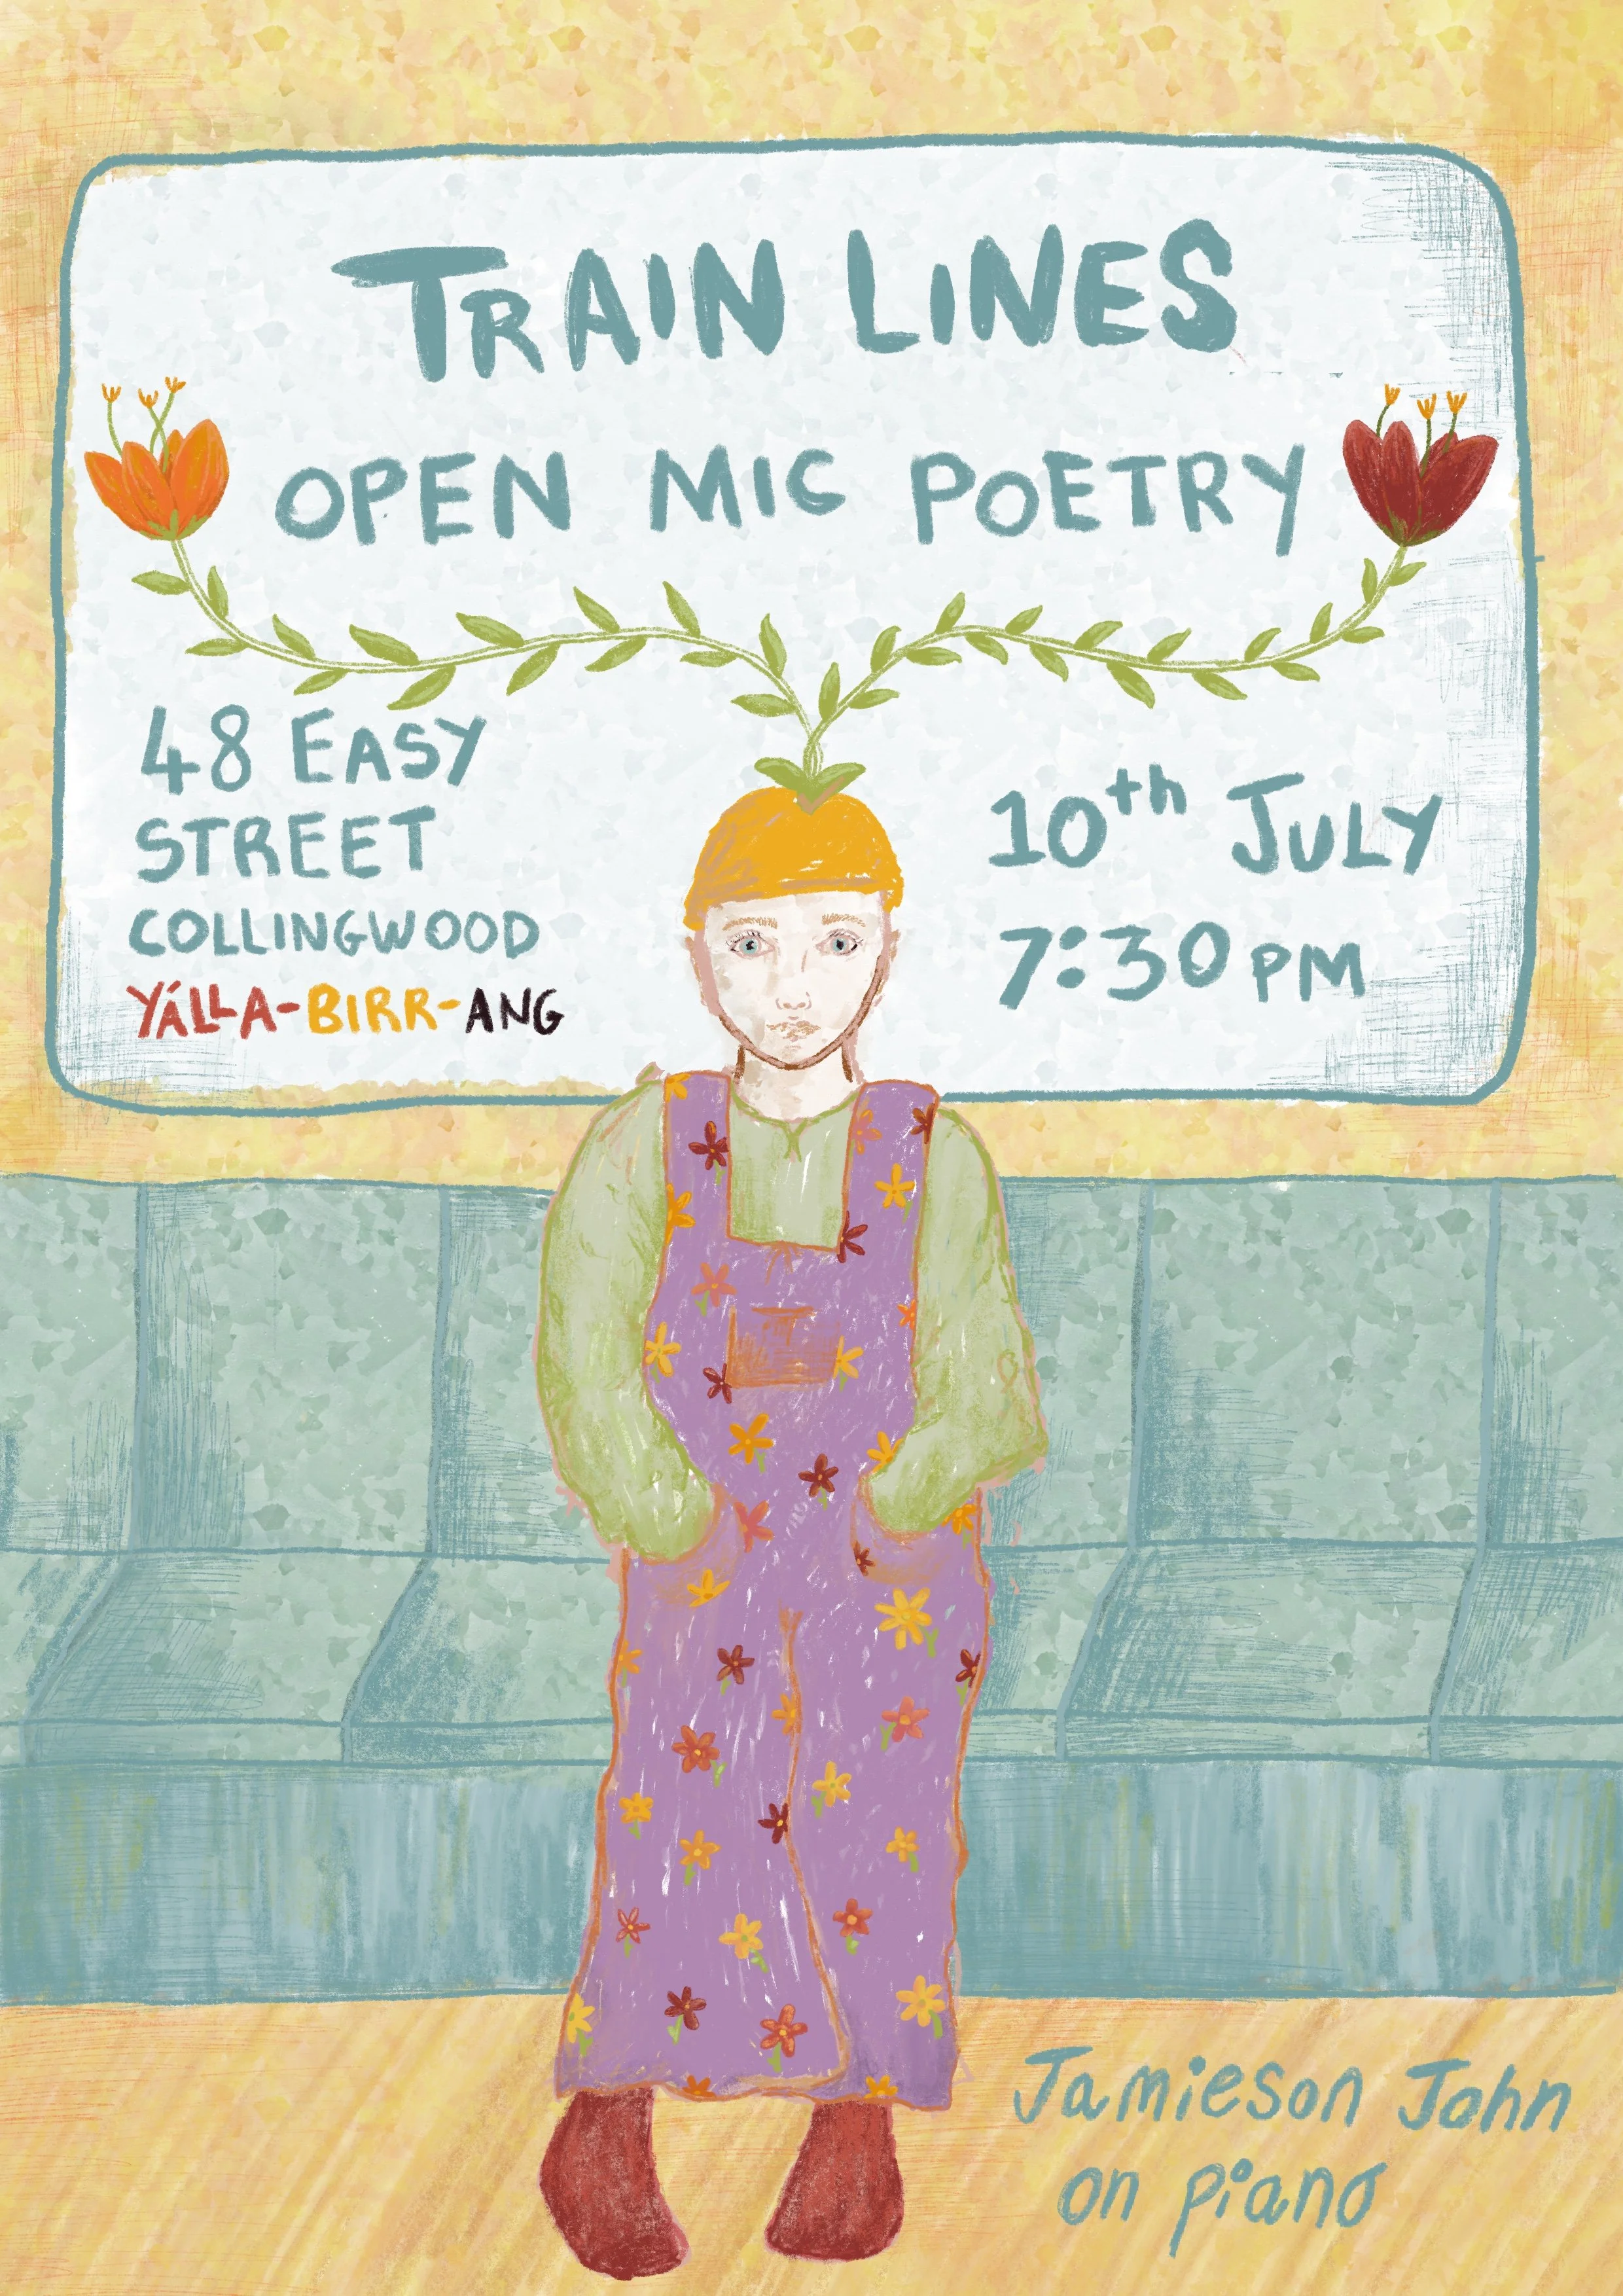 TRAIN LINES
OPEN MIC POETRY
48 EASY
STREET
COLLINGWOOD
YÁLLA-BIRR-ANG
10th JULY
7:30 PM
Jamieson John
on piano